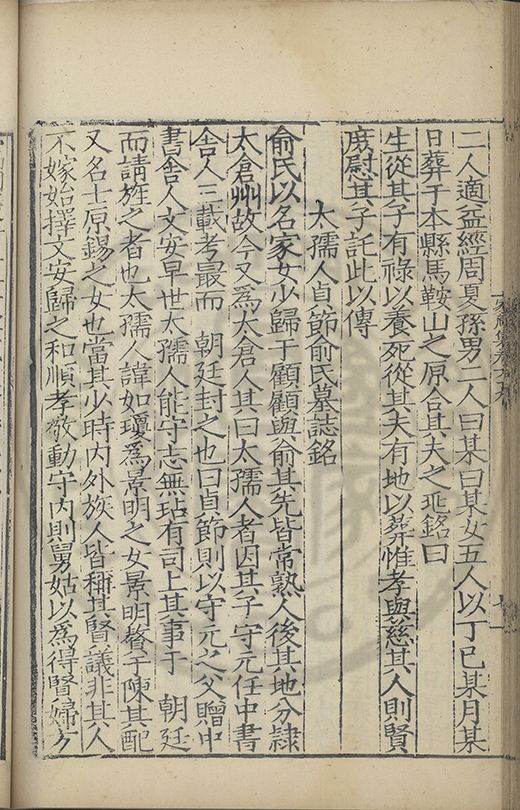 二人適益經周夏孫男二人曰某曰某女五人以丁巳某月某
日葬于本縣馬鞍山之原合其夫之兆銘曰
生從其子有祿以養死從其夫有地以葬惟孝與慈其人則賢
庶慰其子託此以傳
太孺人貞節俞氏墓誌銘
俞氏以名家女少歸于顧顧與俞其先皆常熟人後其地分隷
太倉州故今又爲太倉人其曰太孺人者因其子守元任中書
舍人三載考最而 朝廷封之也曰貞節則以守元之父贈中
書舍人文安早世太孺人能守志無玷有司上其事于 朝廷
而請旌之者也太孺人諱如瓊爲景明之女景明贅于陳其配
又名士原錫之女也當其少時内外族人皆稱其賢議非其人
不嫁始擇文安歸之和順孝敬動守内則舅姑以爲得賢婦方